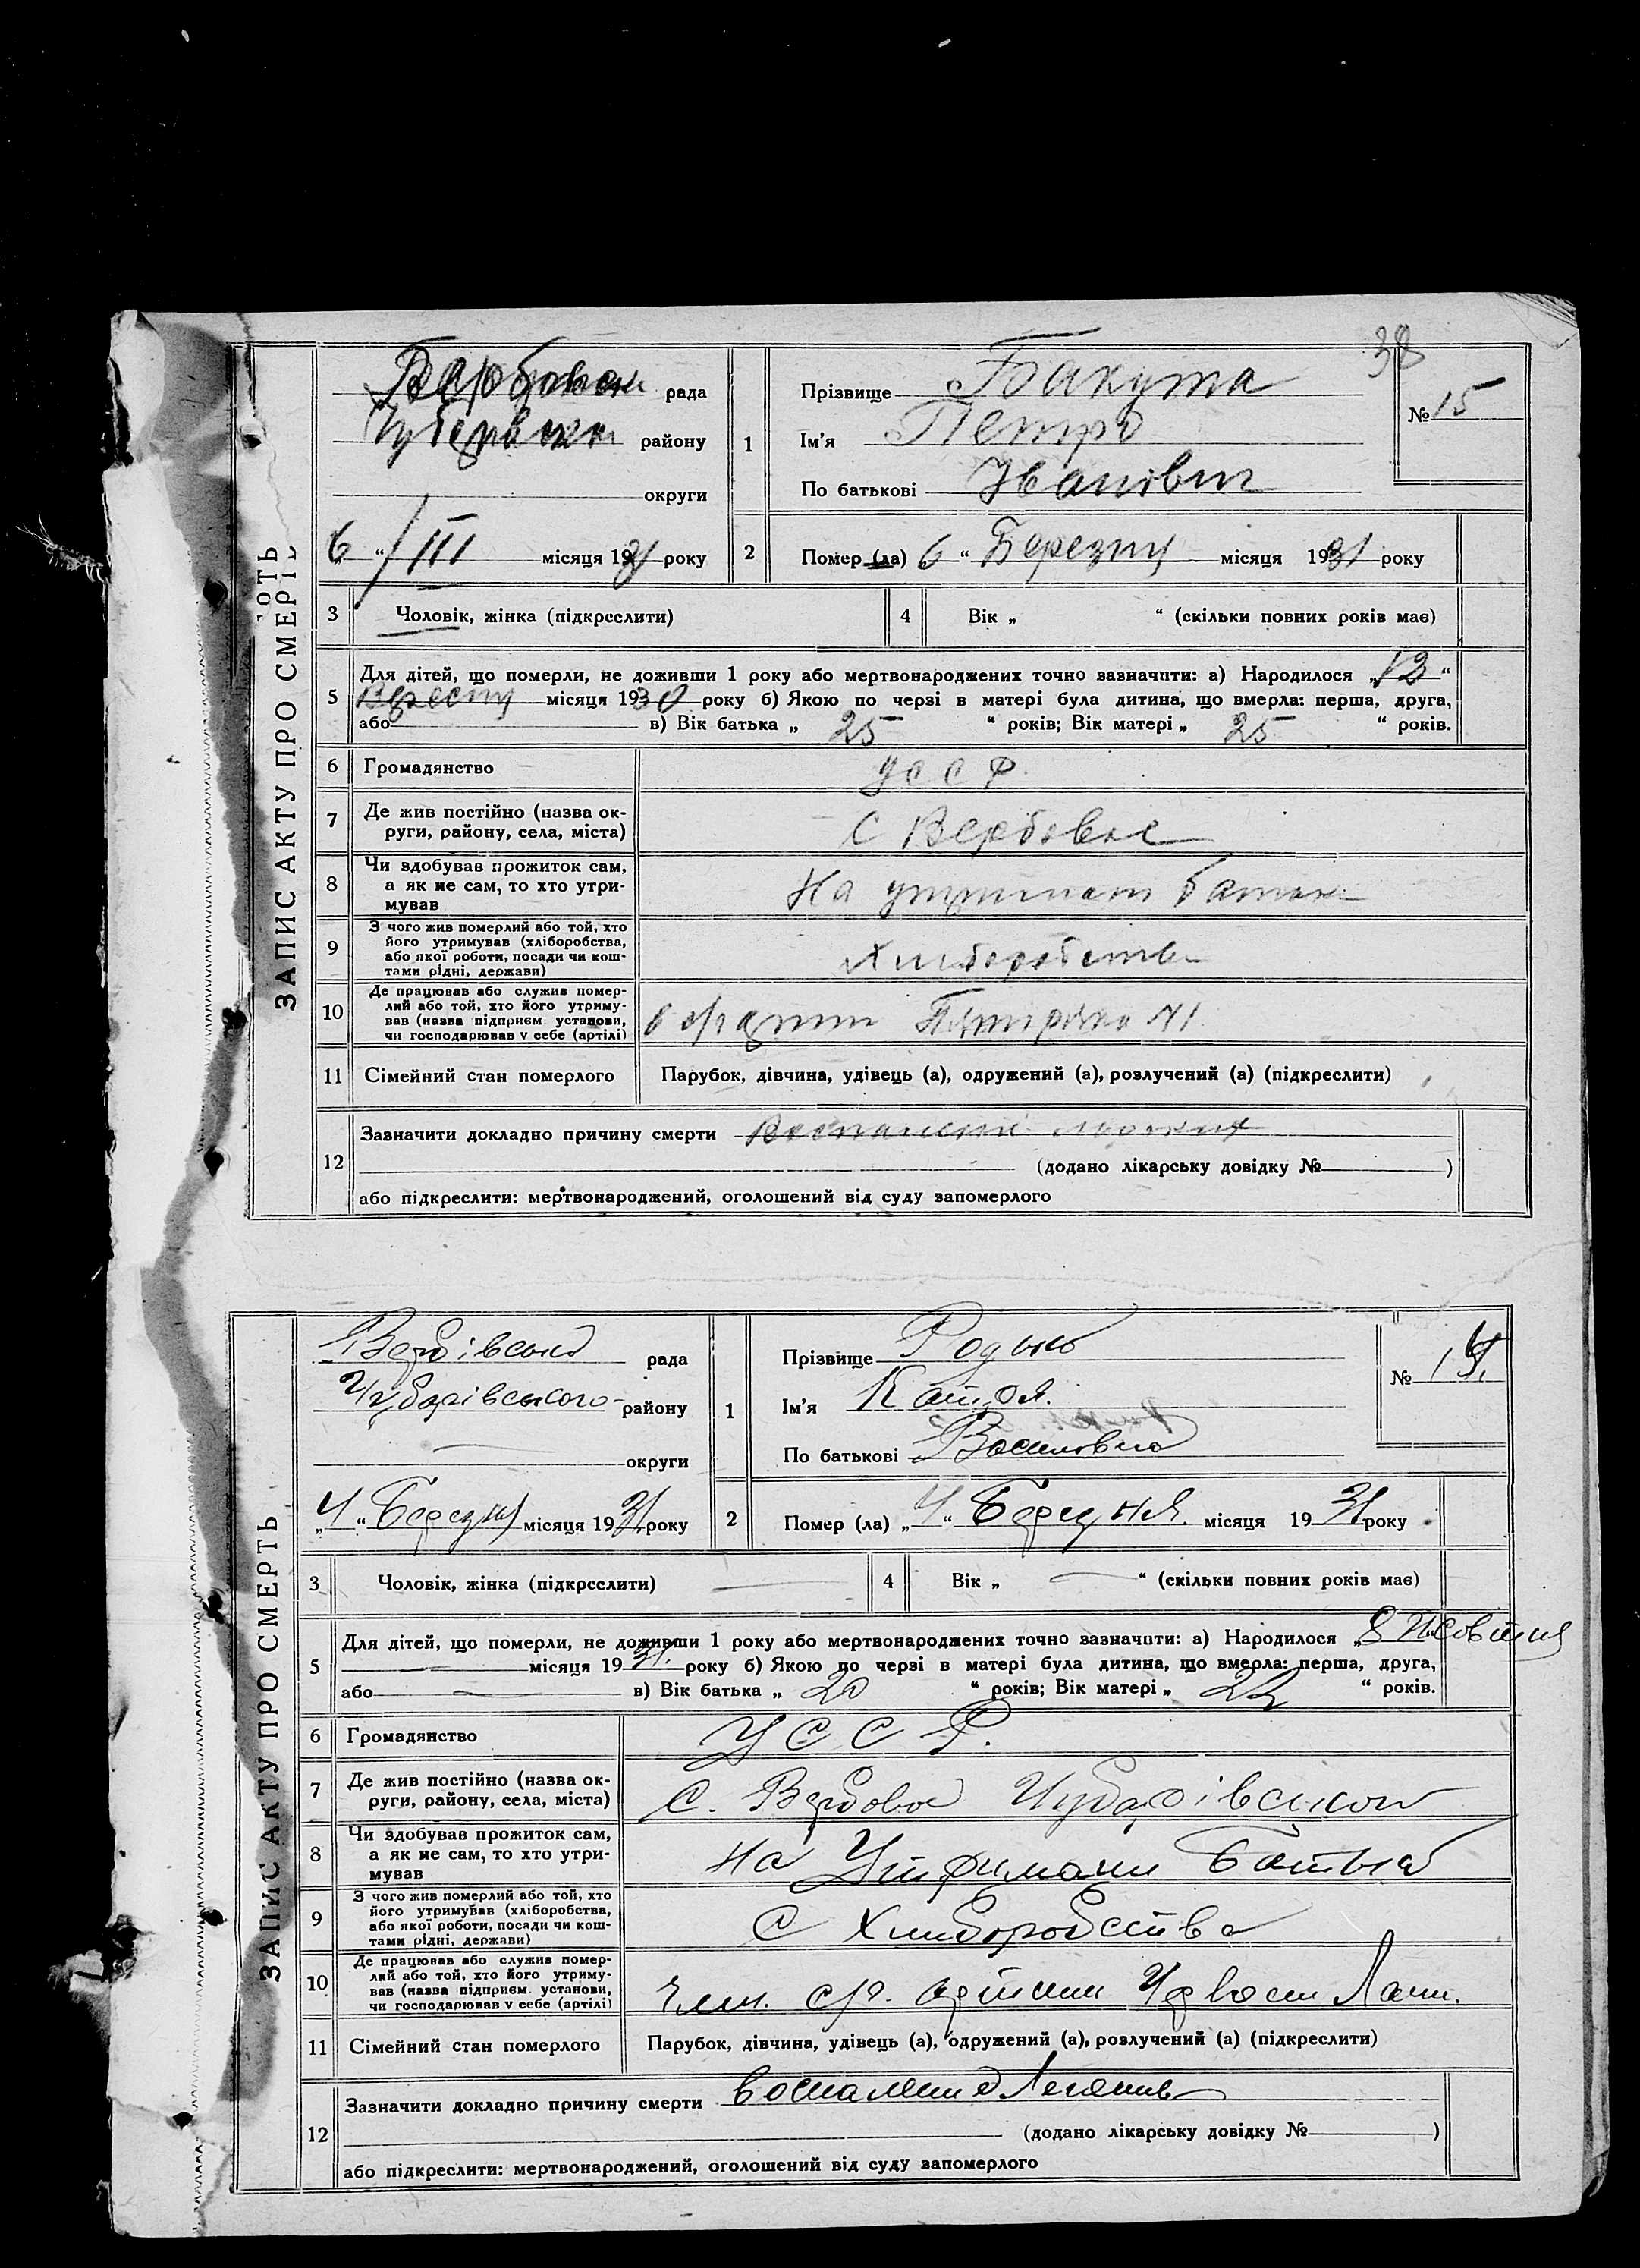 38
ЗАПИС АКТУ ПРО СМЕРТЬ
рада
району
округи
6 “ / III місяця 1931 року
1
Прізвище Бакута
Ім’я Петро
По батькові Іванович
№ 15
2
Помер (ла) 6 “ Березня місяця 1931 року
3 Чоловік, жінка (підкреслити)
4 Вік „ “ (скільки повних років має)
5
Для дітей, що померли, не доживши 1 року або мертвонароджених точно зазначити: а) Народилося „ 12 “
місяця 1930 року б) Якою по черзі в матері була дитина, що вмерла: перша, друга,
або в) Вік батька „ 25 “ років; Вік матері „ 25 “ років.
6 Громадянство УССР
7 Де жив постійно (назва ок-
руги, району, села, міста)
С Вербовое
8 Чи здобував прожиток сам,
а як не сам, то хто утри-
мував
На
9 З чого жив померлий або той, хто
його утримував (хліборобства,
або якої роботи, посади чи кош-
тами рідні, держави)
10 Де працював або служив помер-
лий або той, хто його утриму-
вав (назва підприєм. установи,
чи господарював у себе (артілі)
11 Сімейний стан померлого Парубок, дівчина, удівець (а), одружений (а), розлучений (а) (підкреслити)
12 Зазначити докладно причину смерти
(додано лікарську довідку № )
або підкреслити: мертвонароджений, оголошений від суду запомерлого
ЗАПИС АКТУ ПРО СМЕРТЬ
рада
Чубарівського району
округи
„ 4 “ Березня місяця 1931 року
1
Прізвище
Ім’я
По батькові
№
2
Помер (ла) „ 4 “ Березня місяця 1931 року
3 Чоловік, жінка (підкреслити)
4 Вік „ “ (скільки повних років має)
5
Для дітей, що померли, не доживши 1 року або мертвонароджених точно зазначити: а) Народилося „ 8 Жовтня
місяця 1931. року б) Якою по черзі в матері була дитина, що вмерла: перша, друга,
або в) Вік батька „ 20 “ років; Вік матері „ “ років.
6 Громадянство УССР.
7 Де жив постійно (назва ок-
руги, району, села, міста)
С. Вербове
8 Чи здобував прожиток сам,
а як не сам, то хто утри-
мував
на Утримані
9 З чого жив померлий або той, хто
його утримував (хліборобства,
або якої роботи, посади чи кош-
тами рідні, держави)
С Хліборобства
10 Де працював або служив помер-
лий або той, хто його утриму-
вав (назва підприєм. установи,
чи господарював у себе (артілі)
11 Сімейний стан померлого Парубок, дівчина, удівець (а), одружений (а), розлучений (а) (підкреслити)
12 Зазначити докладно причину смерти
(додано лікарську довідку № )
або підкреслити: мертвонароджений, оголошений від суду запомерлого